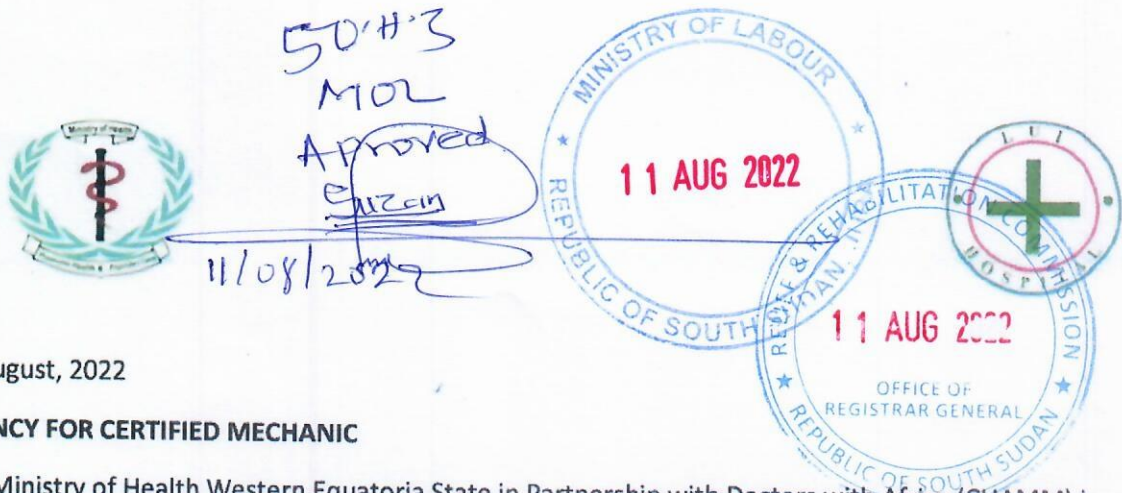 50·H·S
MOL
Aproved
Suzan
11/08/2022
Ministry of Health
MINISTRY OF LABOUR
11 AUG 2022
REPUBLIC OF SOUTH SUDAN
LUI
HOSPITAL
RELIEF & REHABILITATION COMMISSION
11 AUG 2022
OFFICE OF
REGISTRAR GENERAL
REPUBLIC OF SOUTH SUDAN
ugust, 2022
NCY FOR CERTIFIED MECHANIC
Ministry of Health Western Equatoria State in Partnership with Doctors with Africa (CUAMM)